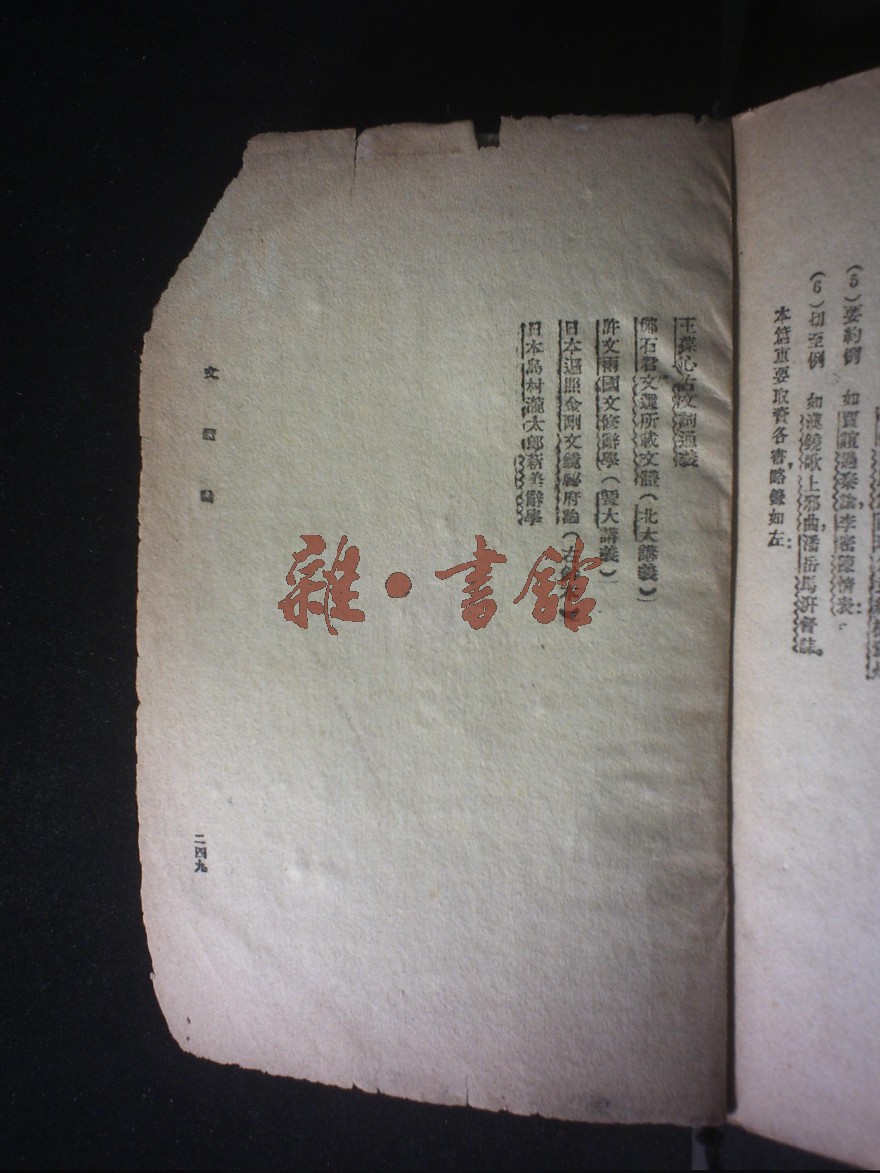 (5)要約例　如賈誼過秦論，李密陳情表。
(6)切至例　如漢鐃歌上邪曲，潘岳馬汧督誄。
本篇重要取資各書，略錄如左：
王葆心古文詞通義
石君文選所載文體(北大講義)
許文雨國文修辭學(暨大講義)
日本遍照金剛文鏡祕府論(古
日本島村瀧太郎新美辭學
文
二四九
雜·書館